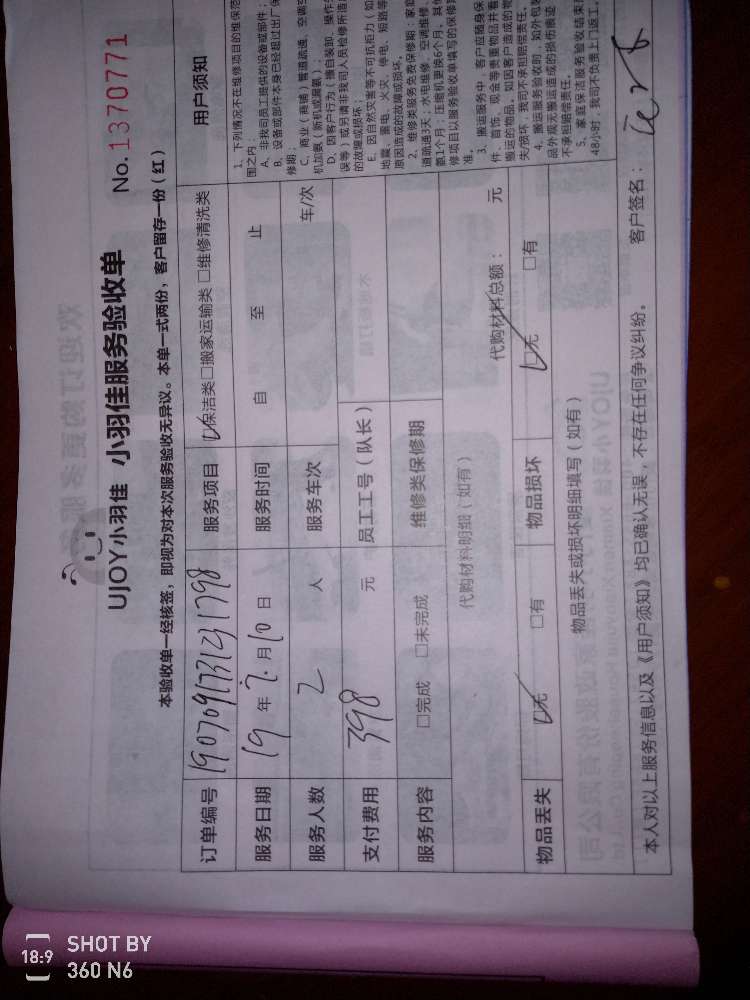 UJOY小羽佳 小羽佳服务验收单 No.1370771
本验收单一经核签，即视为对本次服务验收无异议。本单一式两份，客户留存一份（红）
订单编号 1907091731231798 服务项目 保洁类□搬家运输类 □维修清洗类 用户须知
服务日期 19年7.月10日 服务时间 自 至 止
服务人数 2 人 服务车次 车/次
支付费用 398 元 员工工号（队长）
服务内容 □完成 □未完成 维修类保修期
代购材料明细（如有） 代购材料总额： 元
物品丢失 □无 □有 物品损坏 □无 □有
物品丢失或损坏明细填写（如有）
本人对以上服务信息以及《用户须知》均已确认无误，不存在任何争议纠纷。 客户签名：
1、下列情况不在维修项目的维保范
围之内：
A、非我司员工提供的设备或部件；
B、设备或部件本身已经超过出厂保
修期；
C、商业（商铺）管道疏通、空调
机加氨（新机或漏氨）；
D、因客户行为（擅自装卸、操作失
误等）或另请非我司人员检修所造
的故障或损坏；
E、因自然灾害等不可抗拒力（如
地震、雷电、火灾、停电、短路等
原因造成的故障或损坏。
2、维修类服务免费保修期：家庭
道疏通3天；水电维修、空调维修
氨1个月；压缩机更换6个月，其他
修项目以服务验收单填写的保修期
准。
3、搬运服务中，客户应随身保
件、首饰、现金等贵重物品并看
搬运的物品。如因客户造成的物
失/损坏，我司不承担赔偿责任。
4、搬运服务验收时，如外包装
品外观无搬运造成的损伤痕迹
不承担赔偿责任。
5、家庭保洁服务验收结束后
48小时，我司不负责上门返工。
18:9 SHOT BY
360 N6